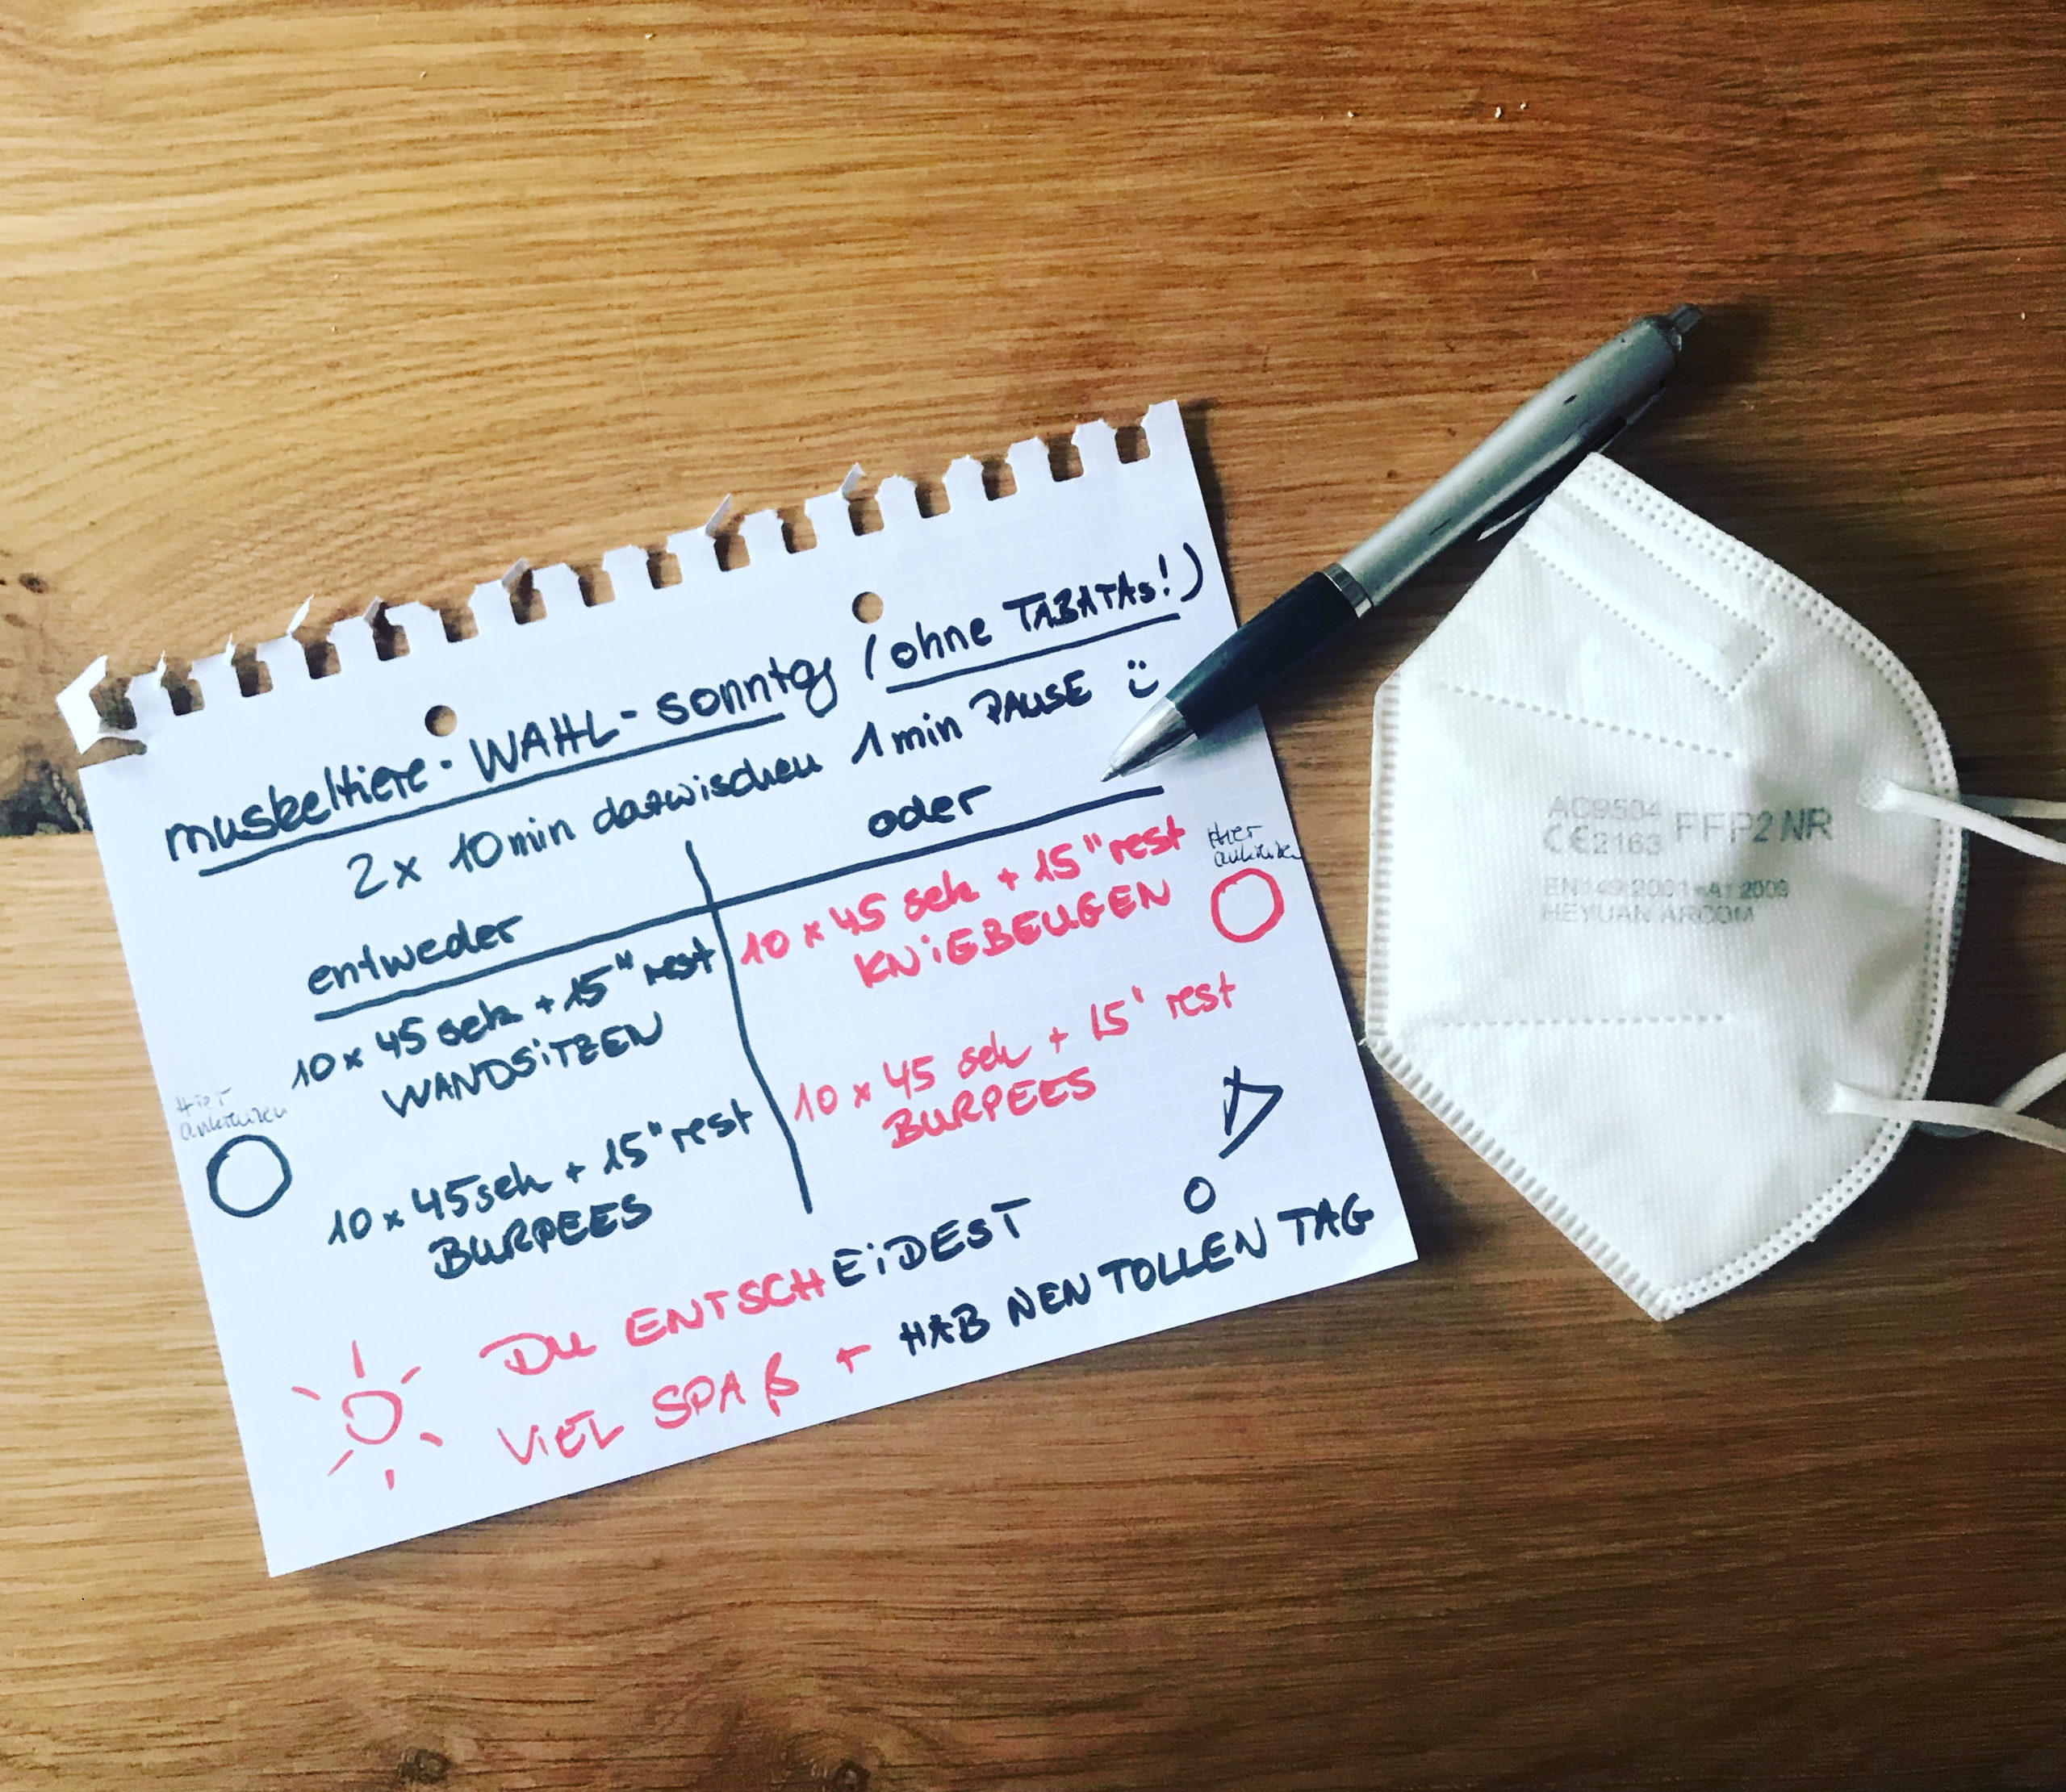 muskeltiere-WAHL-sonntag (ohne TABATAs!)
2x 10min dazwischen 1min PAUSE
entweder
10 x 45 sek + 15" rest
WANDSiTZEN
Hier
ankreuzen
10 x 45 sek + 15" rest
BURPEES
oder
10 x 45 sek + 15" rest
KNiEBEUGEN
Hier
ankreuzen
10 x 45 sek + 15' rest
BURPEES
DU ENTSCHEiDEST
ViEL SPAß + HAB NEN TOLLEN TAG
AC9504
CE2163 FFP2 NR
EN149:2001+A1:2009
HEYUAN ARCOM